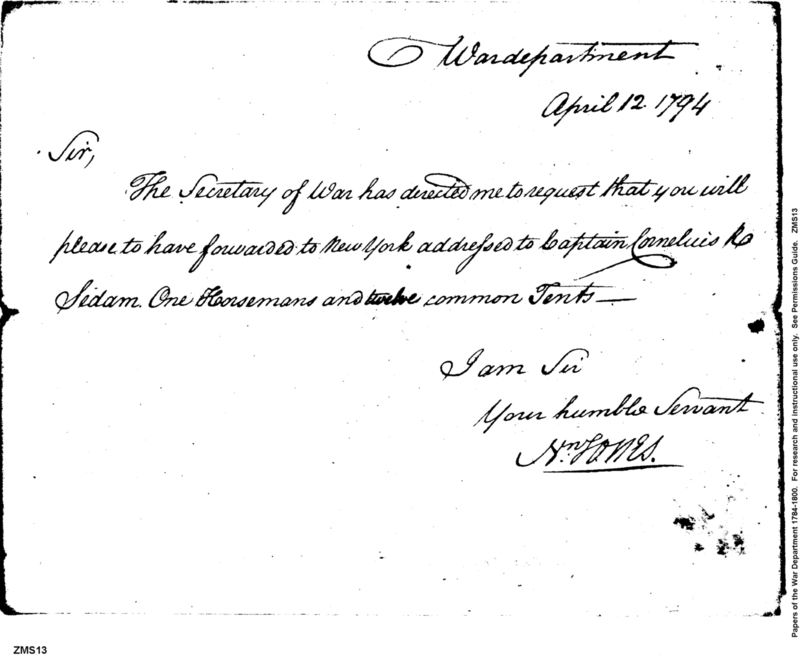 War department
April 12 1794
Sir,
The Secretary of War has directed me to request that you will
please to have forwarded to New York addressed to Captain Cornelius R
Sedam. One Horsemans and twelve common Tents—
I am Sir
Your humble Servant
Nn JONES.
Papers of the War Department 1784-1800. For research and instructional use only. See Permissions Guide. ZMS13
ZMS13